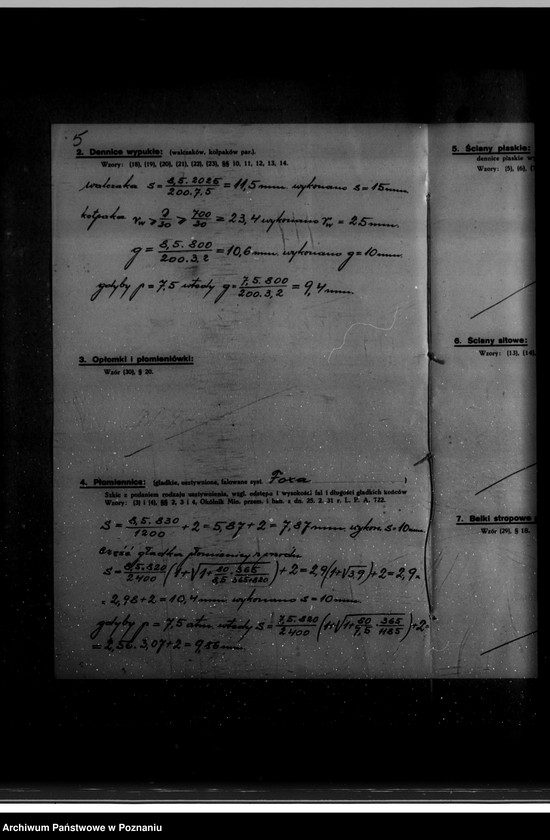 5
2. Dennice wypukłe: (walczaków, kołpaków par.).
Wzory: (18), (19), (20), (21), (22), (23), §§ 10, 11, 12, 13, 14.
walczaka s = 8,5.2025 / 200.7,5 = 11,5 mm. wykonano s = 15 mm.
kołpaka rw ≥ D/30 ≥ 700/30 = 23,4 wykonano rw = 25 mm.
g = 8,5.800 / 200.3,2 = 10,6 mm. wykonano g = 10 mm.
gdyby p = 7,5 wtedy g = 7,5.800 / 200.3,2 = 9,4 mm.
3. Opłomki i płomieniówki:
Wzór (30), § 20.
4. Płomiennice: (gładkie, usztywnione, falowane syst. Foxa )
Szkic z podaniem rodzaju usztywnienia, wzgl. odstępu i wysokości fal i długości gładkich końców
Wzory: (3) i (4), §§ 2, 3 i 4, Okólnik Min. przem. i han. z dn. 25. 2. 31 r. L. P. A. 722.
s = 8,5.830 / 1200 + 2 = 5,87 + 2 = 7,87 mm. wykon. s = 10 mm
część gładka płomienicy z przodu
s = 8,5.820 / 2400 (1+√1+ 50.365 / 8,5.365+820) + 2 = 2,9 (1+√3,9) + 2 = 2,9.
. 2,98 + 2 = 10,4 mm wykonano s = 10 mm.
gdyby p = 7,5 atm. wtedy s = 7,5.820 / 2400 (1+√1+ 50/7,5 . 365/1185) + 2 =
= 2,56. 3,07 + 2 = 9,86 mm.
5. Ściany płaskie:
dennice płaskie
Wzory: (5), (6),
6. Ściany sitowe:
Wzory: (13), (14),
7. Belki stropowe
Wzór (29), § 18.
Archiwum Państwowe w Poznaniu